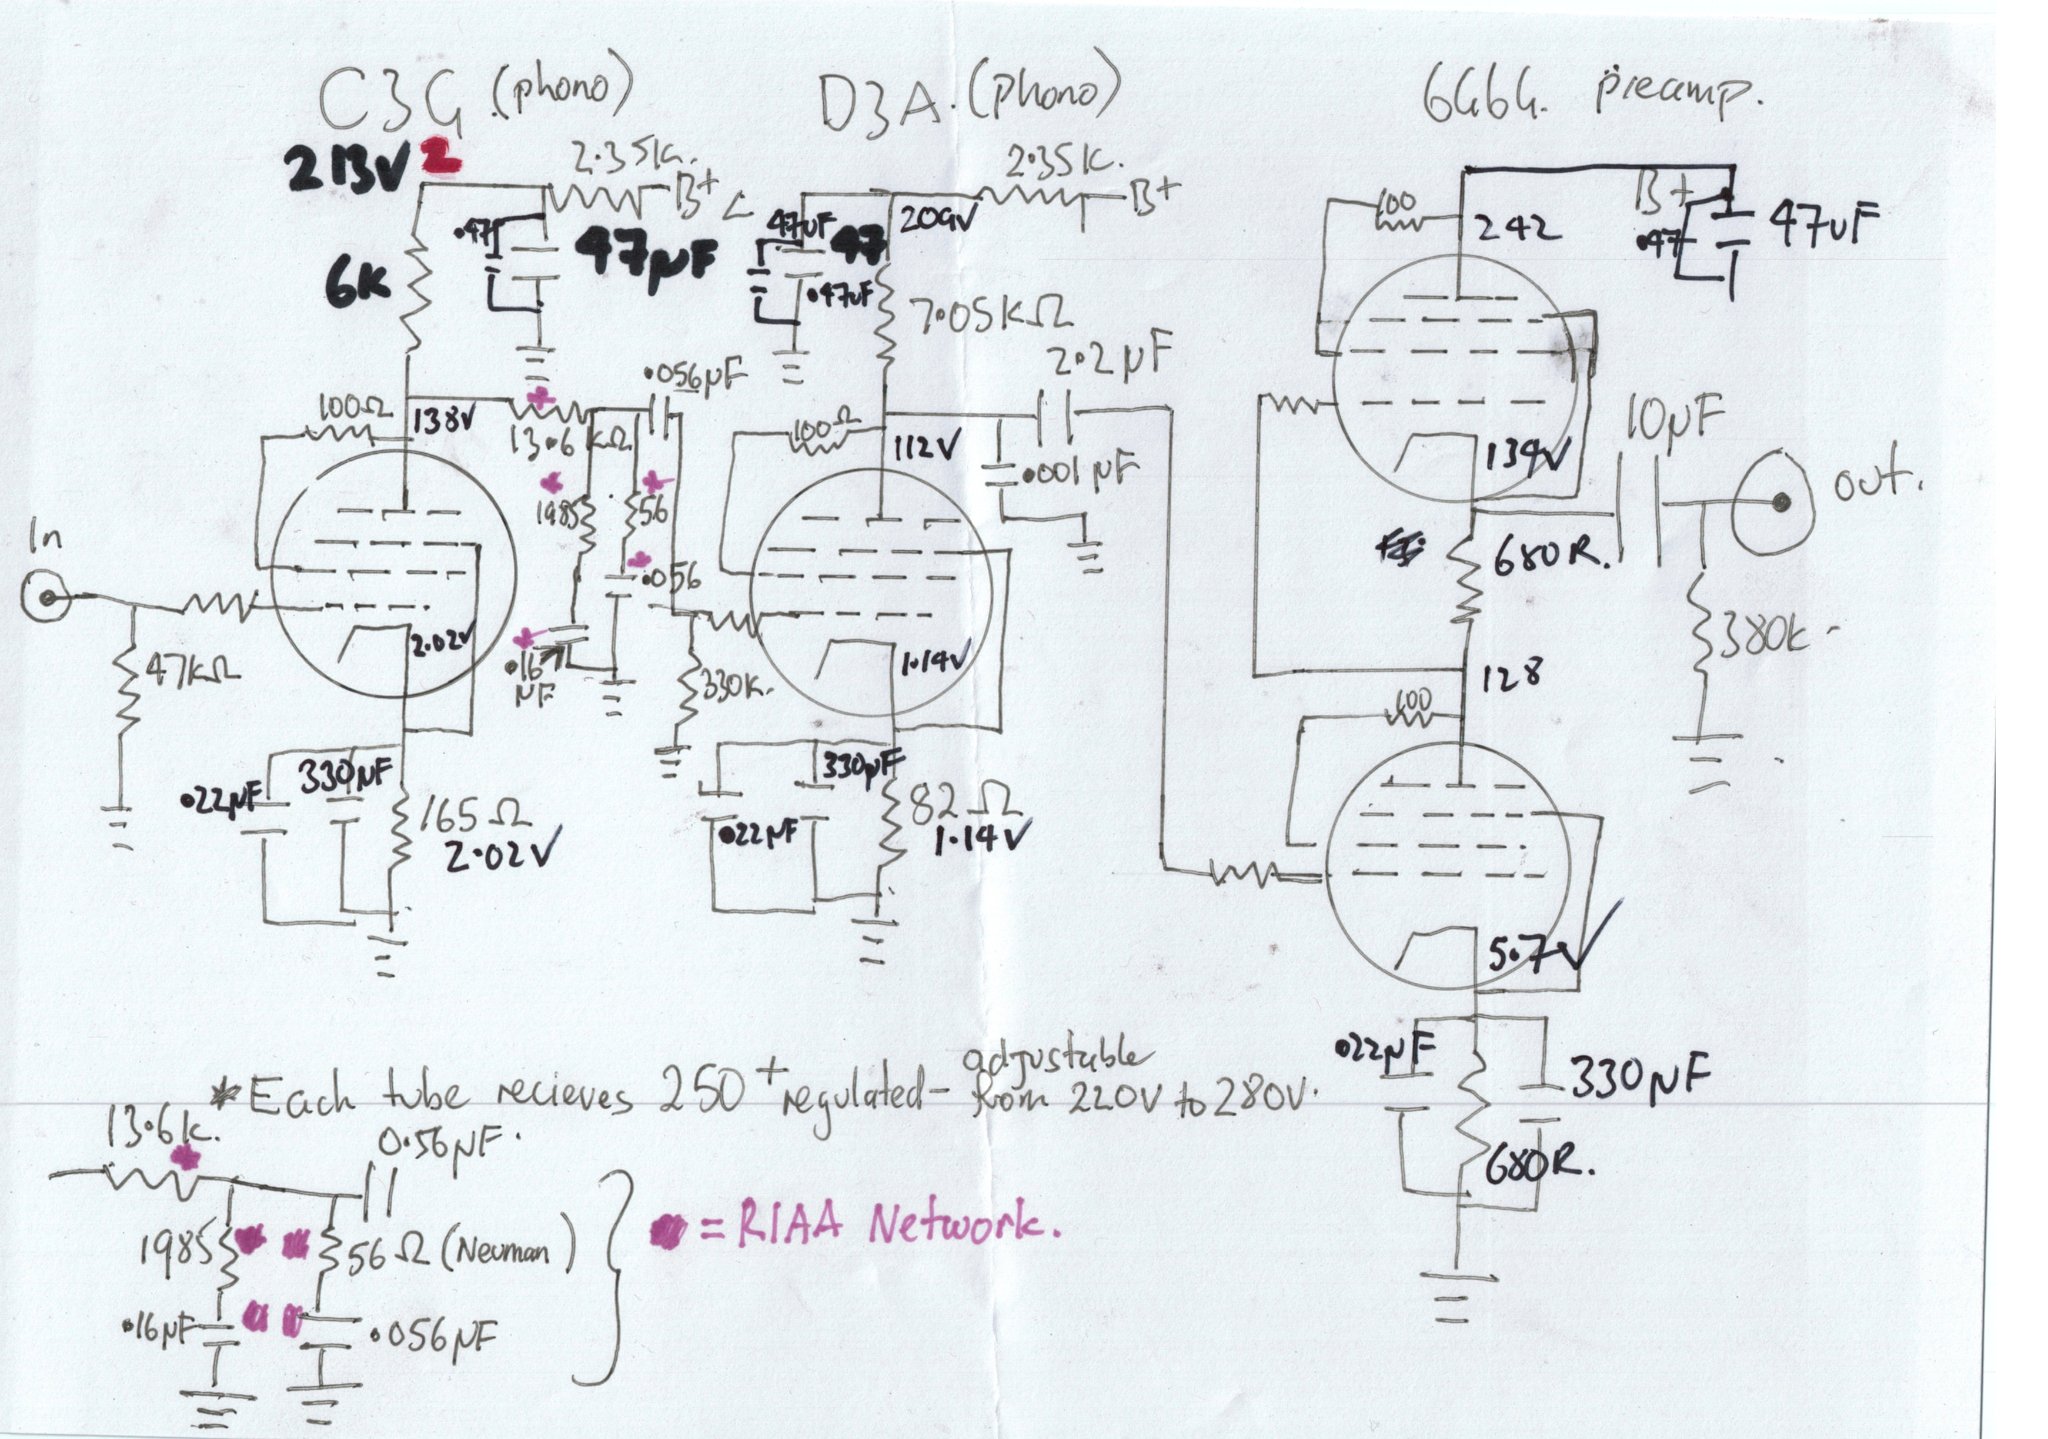 C3G (phono)
D3A. (phono)
6G6G. preamp.
213V 2
2.35K.
B+
.47
47µF
6K
2.35K.
B+
47uF
47
209V
.047uF
7.05KΩ
2.2µF
100
242
B+
.47
47uF
100Ω
138V
13.6KΩ
.056µF
100Ω
112V
.001µF
10µF
134V
out.
In
1985
56
.056
680R.
47KΩ
2.02V
.16
µF
330K.
1.14V
128
100
380K
.022µF
330µF
165Ω
2.02V
330µF
.022µF
82Ω
1.14V
5.7V
.022µF
330µF
680R.
*Each tube recieves 250+ regulated- adjustable
from 220V to 280V.
13.6K.
0.56µF.
1985
56Ω (Neuman)
= RIAA Network.
.16µF
.056µF